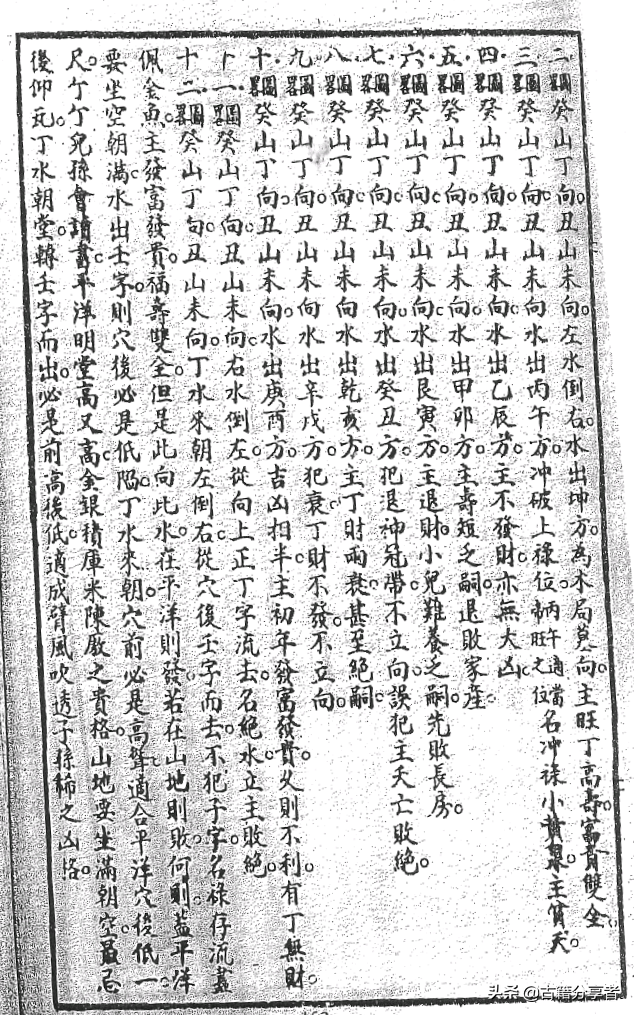 二圖癸山丁向丑山未向左水倒右水出坤方為木局墓向主旺丁高壽富貴雙全
三圖癸山丁向丑山未向水出丙午方冲破上祿位丙午適當帝旺之位名冲祿小黃泉主貧夭
四圖癸山丁向丑山未向水出乙辰方主不發財亦無大凶
五圖癸山丁向丑山未向水出甲卯方主壽短乏嗣退敗家產
六圖癸山丁向丑山未向水出艮寅方主退財小兒難養乏嗣先敗長房
七圖癸山丁向丑山未向水出癸丑方犯退神冠帶不立向誤犯主夭亡敗絕
八圖癸山丁向丑山未向水出乾亥方主丁財兩衰甚至絕嗣
九圖癸山丁向丑山未向水出辛戌方犯衰丁財不發不立向
十圖癸山丁向丑山未向水出庚酉方吉凶相半主初年發富發貴父則不利有丁無財
十一圖癸山丁向丑山未向右水倒左從向上正丁字流去名絕水立主敗絕
十二圖癸山丁向丑山未向丁水來朝左倒右從穴後壬字而去不犯子字名祿存流盡
佩金魚主發富發貴福壽雙全但是此向此水在平洋則發若在山地則敗何則蓋平洋
要坐空朝滿水出壬字則穴後必是低陷丁水來朝穴前必是高聳適合平洋穴後低一
尺个个兒孫會讀書平洋明堂高又高金銀積庫米陳廒之貴格山地要坐滿朝空最忌
後仰瓦丁水朝堂轉壬字而出必是前高後低適成臂風吹透子孫稀之凶格
头条 @古籍分享者